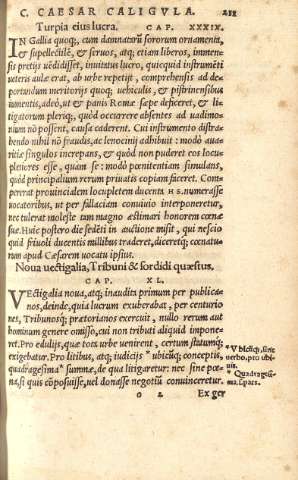 C. CAESAR CALIGVLA. 211
Turpia eius lucra. CAP. XXXIX.
IN Gallia quoq;, cum damnatorũ sororum ornamenta,
& supellectilẽ, & seruos, atq; etiam liberos, immensis
pretijs uẽdidisset, inuitatus lucro, quicquid instrumẽti
ueteris aulæ erat, ab urbe repetijt, comprehensis ad de-
portandum meritorijs quoq; uehiculis, & pistrinensibus
iumentis, adeò, ut & panis Romæ sæpe deficeret, & li-
tigatorum pleriq;, quòd occurrere absentes ad uadimo-
nium nõ possent, causa caderent. Cui instrumento distra-
hendo nihil nõ fraudis, ac lenocinij adhibuit: modò aua-
ritiæ singulos increpans, & quòd non puderet eos locu-
pletiores esse, quàm se: modò pœnitentiam simulans,
quòd principalium rerum priuatis copiam faceret. Com-
pererat prouincialem locupletem ducenta HS. numerasse
uocatoribus, ut per fallaciam conuiuio interponeretur,
nec tulerat moleste tam magno æstimari honorem cœnæ
suæ. Huic postero die sedẽti in auctione misit, qui nescio
quid friuoli ducentis millibus traderet, diceretq; cœnatu-
rum apud Cæsarem uocatu ipsius.
Noua uectigalia, Tribuni & sordidi quæstus.
CAP. XL.
VEctigalia noua, atq; inaudita primum per publica-
nos, deinde, quia lucrum exuberabat, per centurio
nes, Tribunosq; prætorianos exercuit, nullo rerum aut
hominum genere omisso, cui non tributi aliquid impone-
ret. Pro edulijs, quæ tota urbe uenirent, certum statumq;
exigebatur. Pro litibus, atq; iudicijs * ubicũq; conceptis,
quadragesima * summæ, de qua litigaretur: nec sine pœ-
na, si quis cõposuisse, uel donasse negotiũ conuinceretur.
* Vbicũq;, sine
uerbo, pro ubi
uis.
* Quadragesi-
ma.
o 2 Ex ger